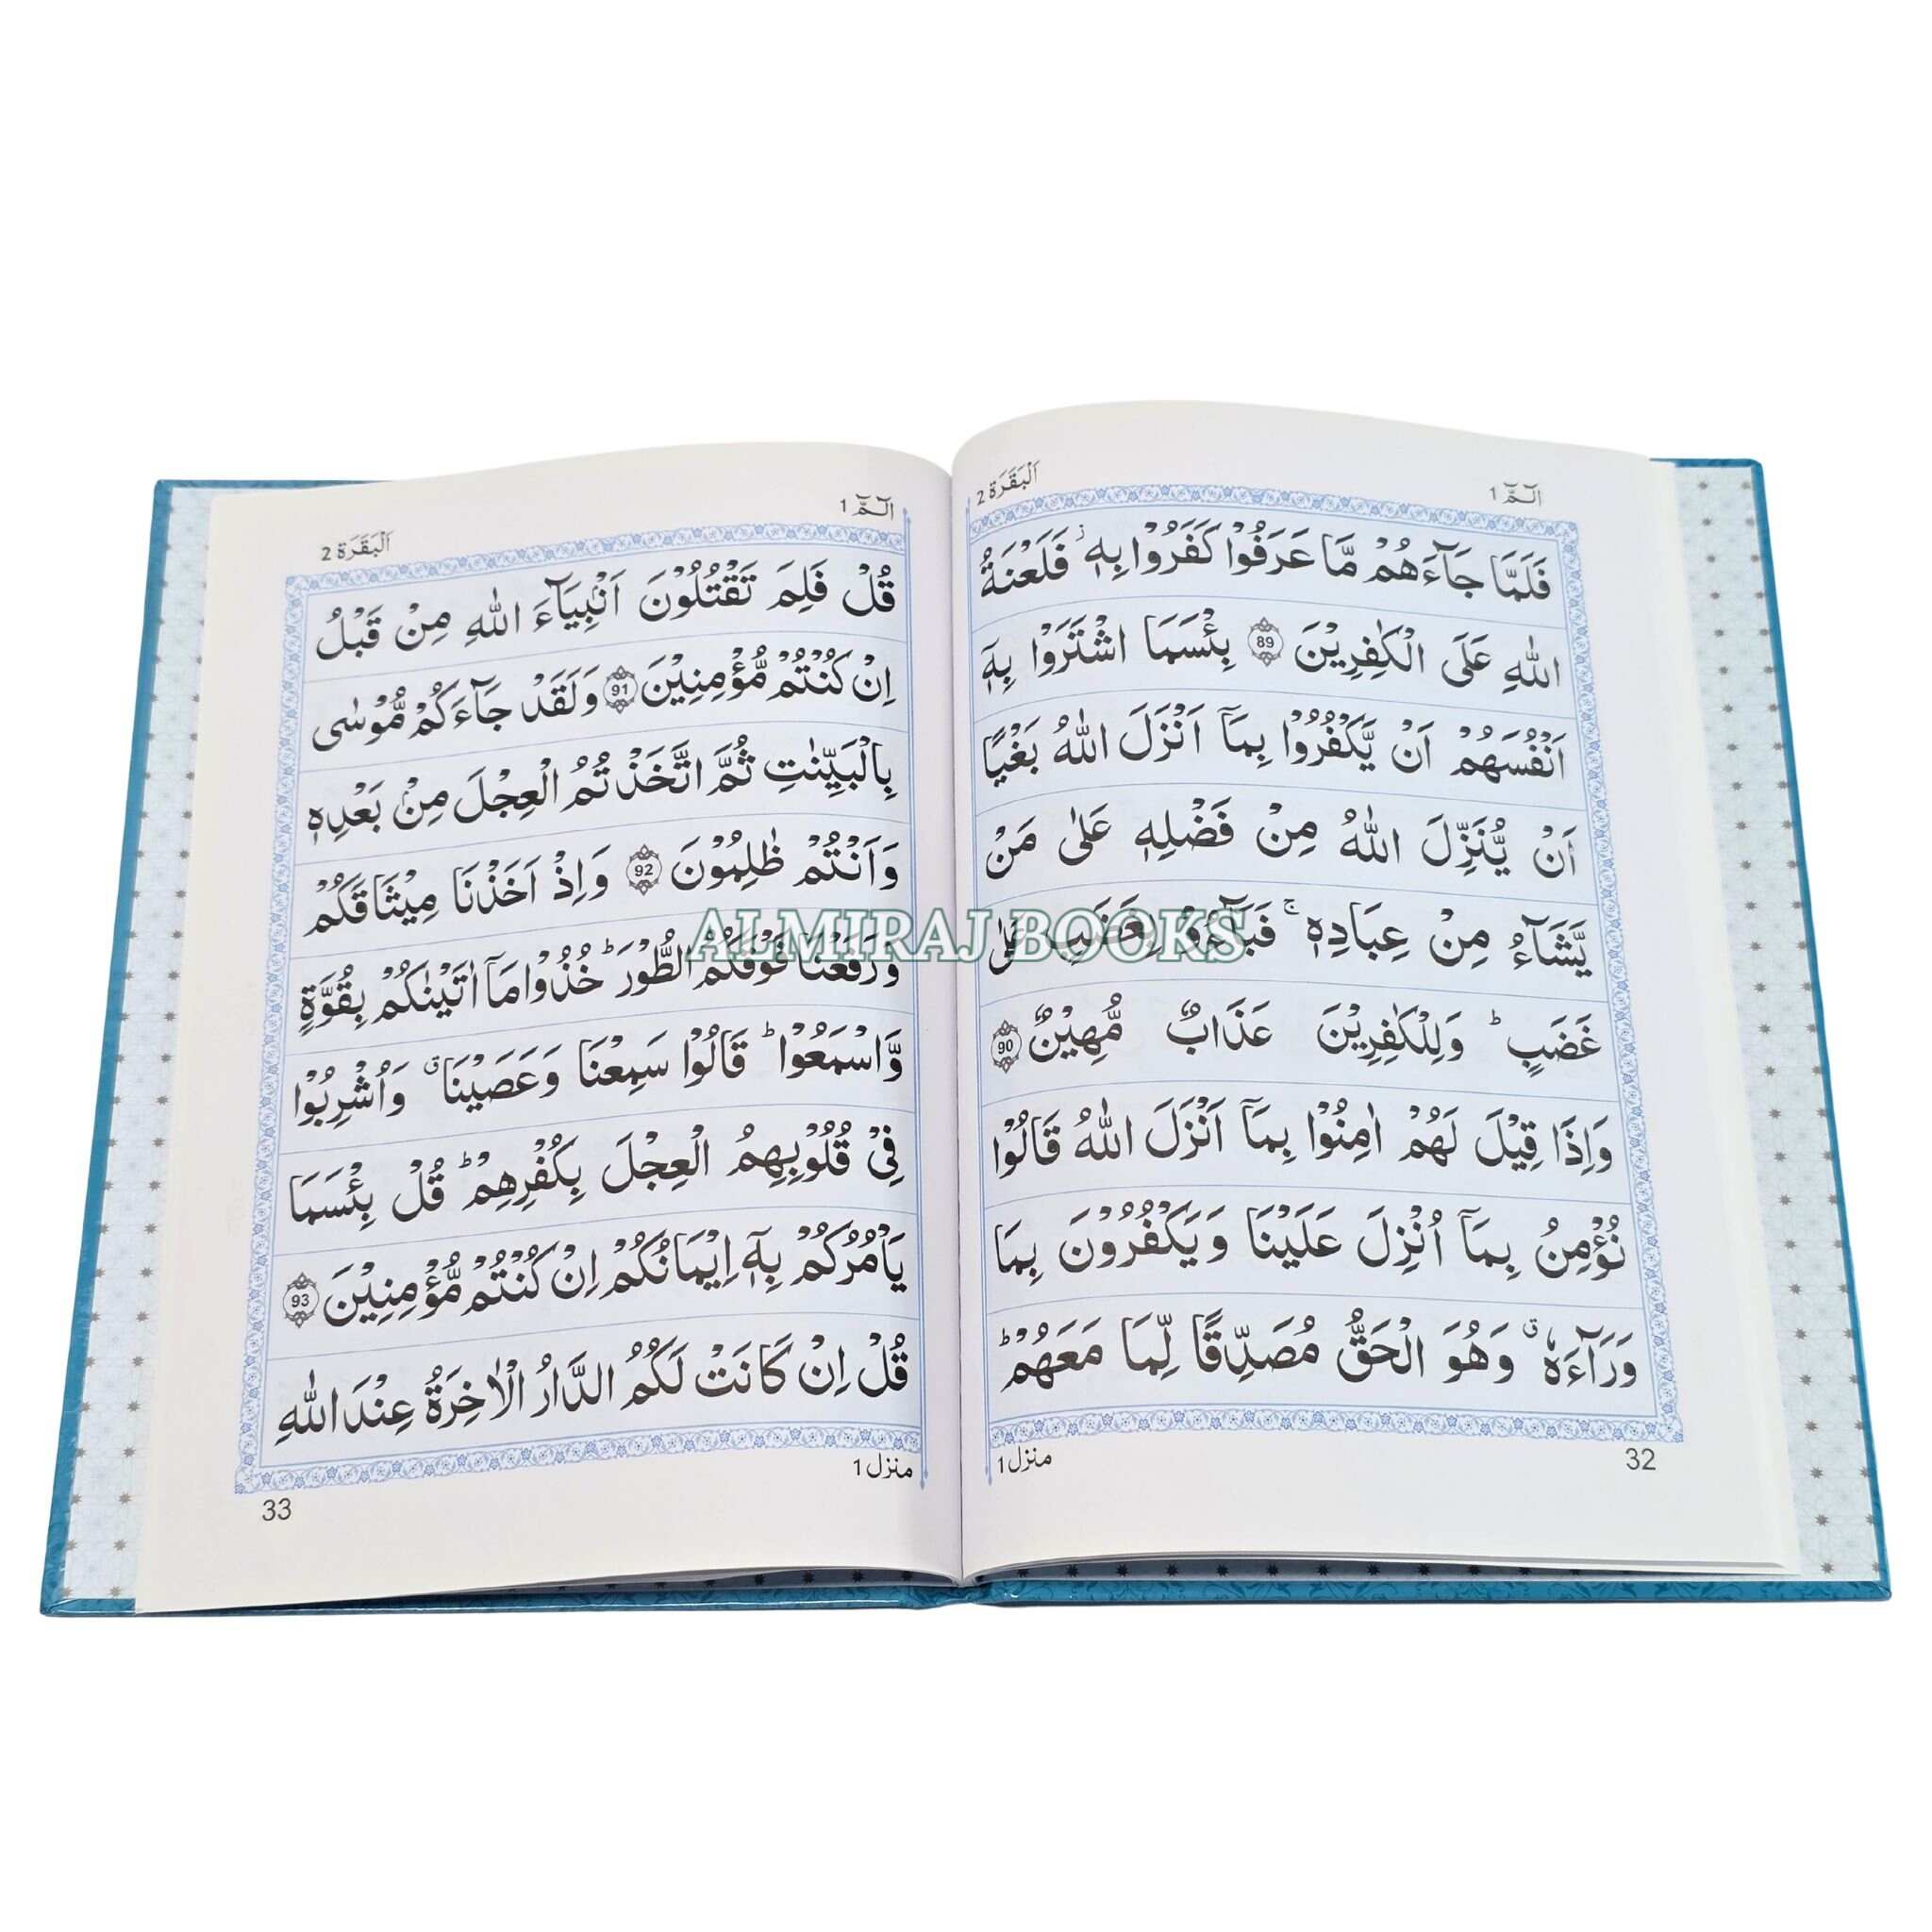 الٓـمّٓ 1
اَلْبَقَرَة 2
فَلَمَّا جَآءَهُمْ مَّا عَرَفُوْا كَفَرُوْا بِهٖ ز فَلَعْنَةُ
اللّٰهِ عَلَى الْكٰفِرِيْنَ 89 بِئْسَمَا اشْتَرَوْا بِهٖٓ
اَنْفُسَهُمْ اَنْ يَّكْفُرُوْا بِمَآ اَنْزَلَ اللّٰهُ بَغْيًا
اَنْ يُّنَزِّلَ اللّٰهُ مِنْ فَضْلِهٖ عَلٰى مَنْ
يَّشَآءُ مِنْ عِبَادِهٖ ۚ فَبَآءُوْ بِغَضَبٍ عَلٰى
غَضَبٍ ؕ وَلِلْكٰفِرِيْنَ عَذَابٌ مُّهِيْنٌ 90
وَاِذَا قِيْلَ لَهُمْ اٰمِنُوْا بِمَآ اَنْزَلَ اللّٰهُ قَالُوْا
نُؤْمِنُ بِمَآ اُنْزِلَ عَلَيْنَا وَيَكْفُرُوْنَ بِمَا
وَرَآءَهٗ ق وَهُوَ الْحَقُّ مُصَدِّقًا لِّمَا مَعَهُمْ ؕ
منزل 1
32
الٓـمّٓ 1
اَلْبَقَرَة 2
قُلْ فَلِمَ تَقْتُلُوْنَ اَنْۢبِيَآءَ اللّٰهِ مِنْ قَبْلُ
اِنْ كُنْتُمْ مُّؤْمِنِيْنَ 91 وَلَقَدْ جَآءَكُمْ مُّوْسٰى
بِالْبَيِّنٰتِ ثُمَّ اتَّخَذْتُمُ الْعِجْلَ مِنْۢ بَعْدِهٖ
وَاَنْتُمْ ظٰلِمُوْنَ 92 وَاِذْ اَخَذْنَا مِيْثَاقَكُمْ
وَرَفَعْنَا فَوْقَكُمُ الطُّوْرَ ؕ خُذُوْا مَآ اٰتَيْنٰكُمْ بِقُوَّةٍ
وَّاسْمَعُوْا ؕ قَالُوْا سَمِعْنَا وَعَصَيْنَا ق وَاُشْرِبُوْا
فِيْ قُلُوْبِهِمُ الْعِجْلَ بِكُفْرِهِمْ ؕ قُلْ بِئْسَمَا
يَاْمُرُكُمْ بِهٖٓ اِيْمَانُكُمْ اِنْ كُنْتُمْ مُّؤْمِنِيْنَ 93
قُلْ اِنْ كَانَتْ لَكُمُ الدَّارُ الْاٰخِرَةُ عِنْدَ اللّٰهِ
منزل 1
33
ALMIRAJ BOOKS